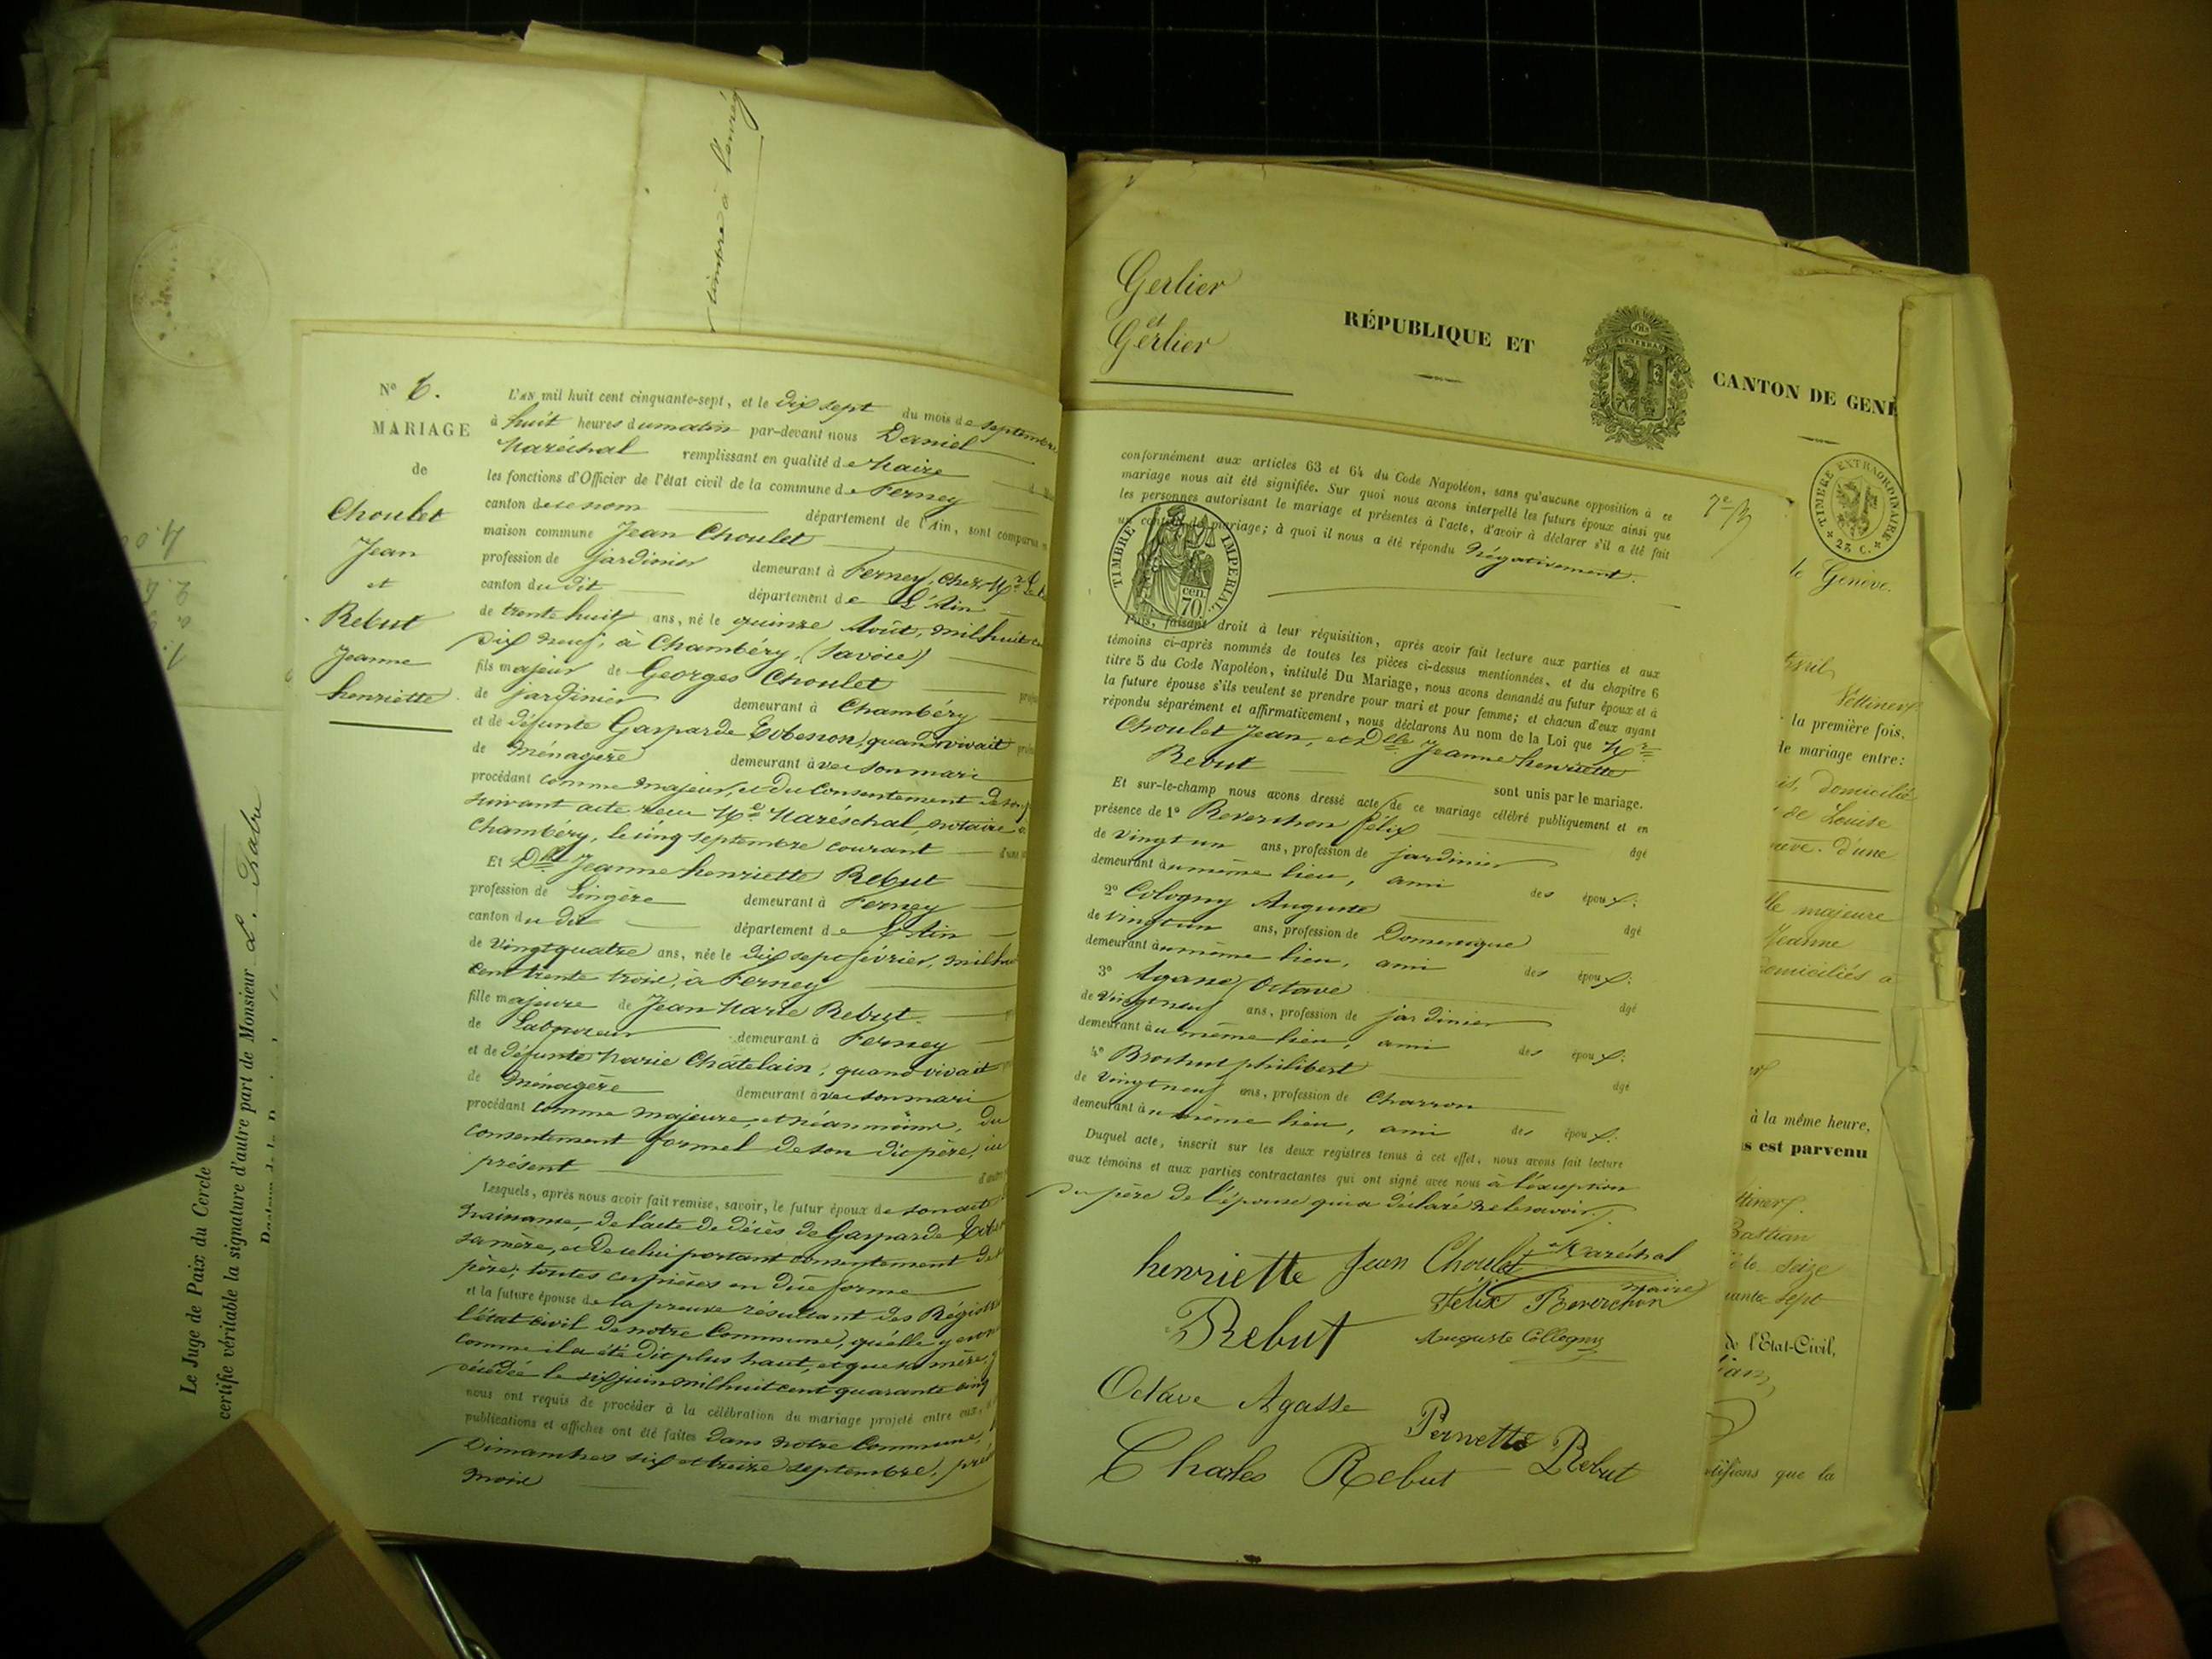 timbre à l'enreg
N° 6.
MARIAGE
de
Choulet
Jean
et
Rebut
Jeanne
henriette
L'AN mil huit cent cinquante-sept, et le dix sept du mois de septembre
à huit heures du matin par-devant nous Daniel
Maréchal remplissant en qualité de Maire
les fonctions d'Officier de l'état civil de la commune de Ferney
canton de ce nom département de l'Ain, sont comparus
maison commune Jean Choulet
profession de jardinier demeurant à Ferney, chez Mr
canton du dit département de L'Ain
de trente huit ans, né le quinze Août, mil huit
dix neuf, à Chambéry, (Savoie)
fils majeur de Georges Choulet
de jardinier demeurant à Chambéry
et de défunte Gasparde quand vivait
de Ménagère demeurant avec son mari
procédant comme majeur, et du Consentement de son
suivant acte reçu Me Maréschal, notaire
Chambéry, le cinq septembre courant
Et Dlle Jeanne henriette Rebut
profession de Lingère demeurant à Ferney
canton du dit département de L'Ain
de Vingt quatre ans, née le dix sept février, mil hui
cent trente trois, à Ferney
fille majeure de Jean Marie Rebut
de Laboureur demeurant à Ferney
et de défunte Marie Châtelain, quand vivait
de Ménagère demeurant avec son mari
procédant comme majeure, et néanmoins, du
Consentement formel de son dit père, ici
présent
Lesquels, après nous avoir fait remise, savoir, le futur époux de son acte
naissance, de l'acte de décès de Gasparde
sa mère, et de celui portant consentement de
père; toutes ces pièces en due forme
et la future épouse de la preuve résultant des Régistr
l'état civil de notre Commune, qu'elle y est
comme il a été dit plus haut, et que sa mère,
décédée le six juin mil huit cent quarante cinq
nous ont requis de procéder à la célébration du mariage projeté entre eux,
publications et affiches ont été faites dans notre Commune,
Dimanches six et treize septembre, pré
mois
Le Juge de Paix du Cercle
certifie véritable la signature d'autre part de Monsieur L. Fabre
Gerlier
et
Gerlier
RÉPUBLIQUE ET
CANTON DE GENÈ
TIMBRE EXTRAORDINAIRE
25 C.
conformément aux articles 63 et 64 du Code Napoléon, sans qu'aucune opposition à ce
mariage nous ait été signifiée. Sur quoi nous avons interpellé les futurs époux ainsi que
les personnes autorisant le mariage et présentes à l'acte, d'avoir à déclarer s'il a été fait
un contrat de mariage; à quoi il nous a été répondu Négativement.
TIMBRE IMPERIAL
cen.
70.
Puis, faisant droit à leur réquisition, après avoir fait lecture aux parties et aux
témoins ci-après nommés de toutes les pièces ci-dessus mentionnées, et du chapitre 6
titre 5 du Code Napoléon, intitulé Du Mariage, nous avons demandé au futur époux et à
la future épouse s'ils veulent se prendre pour mari et pour femme; et chacun d'eux ayant
répondu séparément et affirmativement, nous déclarons Au nom de la Loi que Mr
Choulet Jean, et Dlle Jeanne henriette
Rebut sont unis par le mariage.
Et sur-le-champ nous avons dressé acte de ce mariage célébré publiquement et en
présence de 1° Reverchon félix âgé
de Vingt un ans, profession de jardinier
demeurant au même lieu, ami des époux.
2° Cologny Auguste âgé
de Vingt un ans, profession de Domestique
demeurant au même lieu, ami des époux.
3° Agasse Octave âgé
de Vingt neuf ans, profession de jardinier
demeurant au même lieu, ami des époux.
4° Brochut philibert âgé
de Vingt neuf ans, profession de Charron
demeurant au même lieu, ami des époux.
Duquel acte, inscrit sur les deux registres tenus à cet effet, nous avons fait lecture
aux témoins et aux parties contractantes qui ont signé avec nous à l'exception
du père de l'épouse qui a déclaré ne le savoir.
henriette Jean Choulet Maréchal
maire
Rebut Félix Reverchon
Auguste Collogny
Octave Agasse
Pernette Rebut
Charles Rebut
de Genève.
la première fois,
le mariage entre:
domicilié
de Louise
d'une
lle majeure
Jeanne
domiciliés à
à la même heure,
s est parvenu
Bastian
le Seize
uante sept
de l'Etat-Civil,
ifions que la